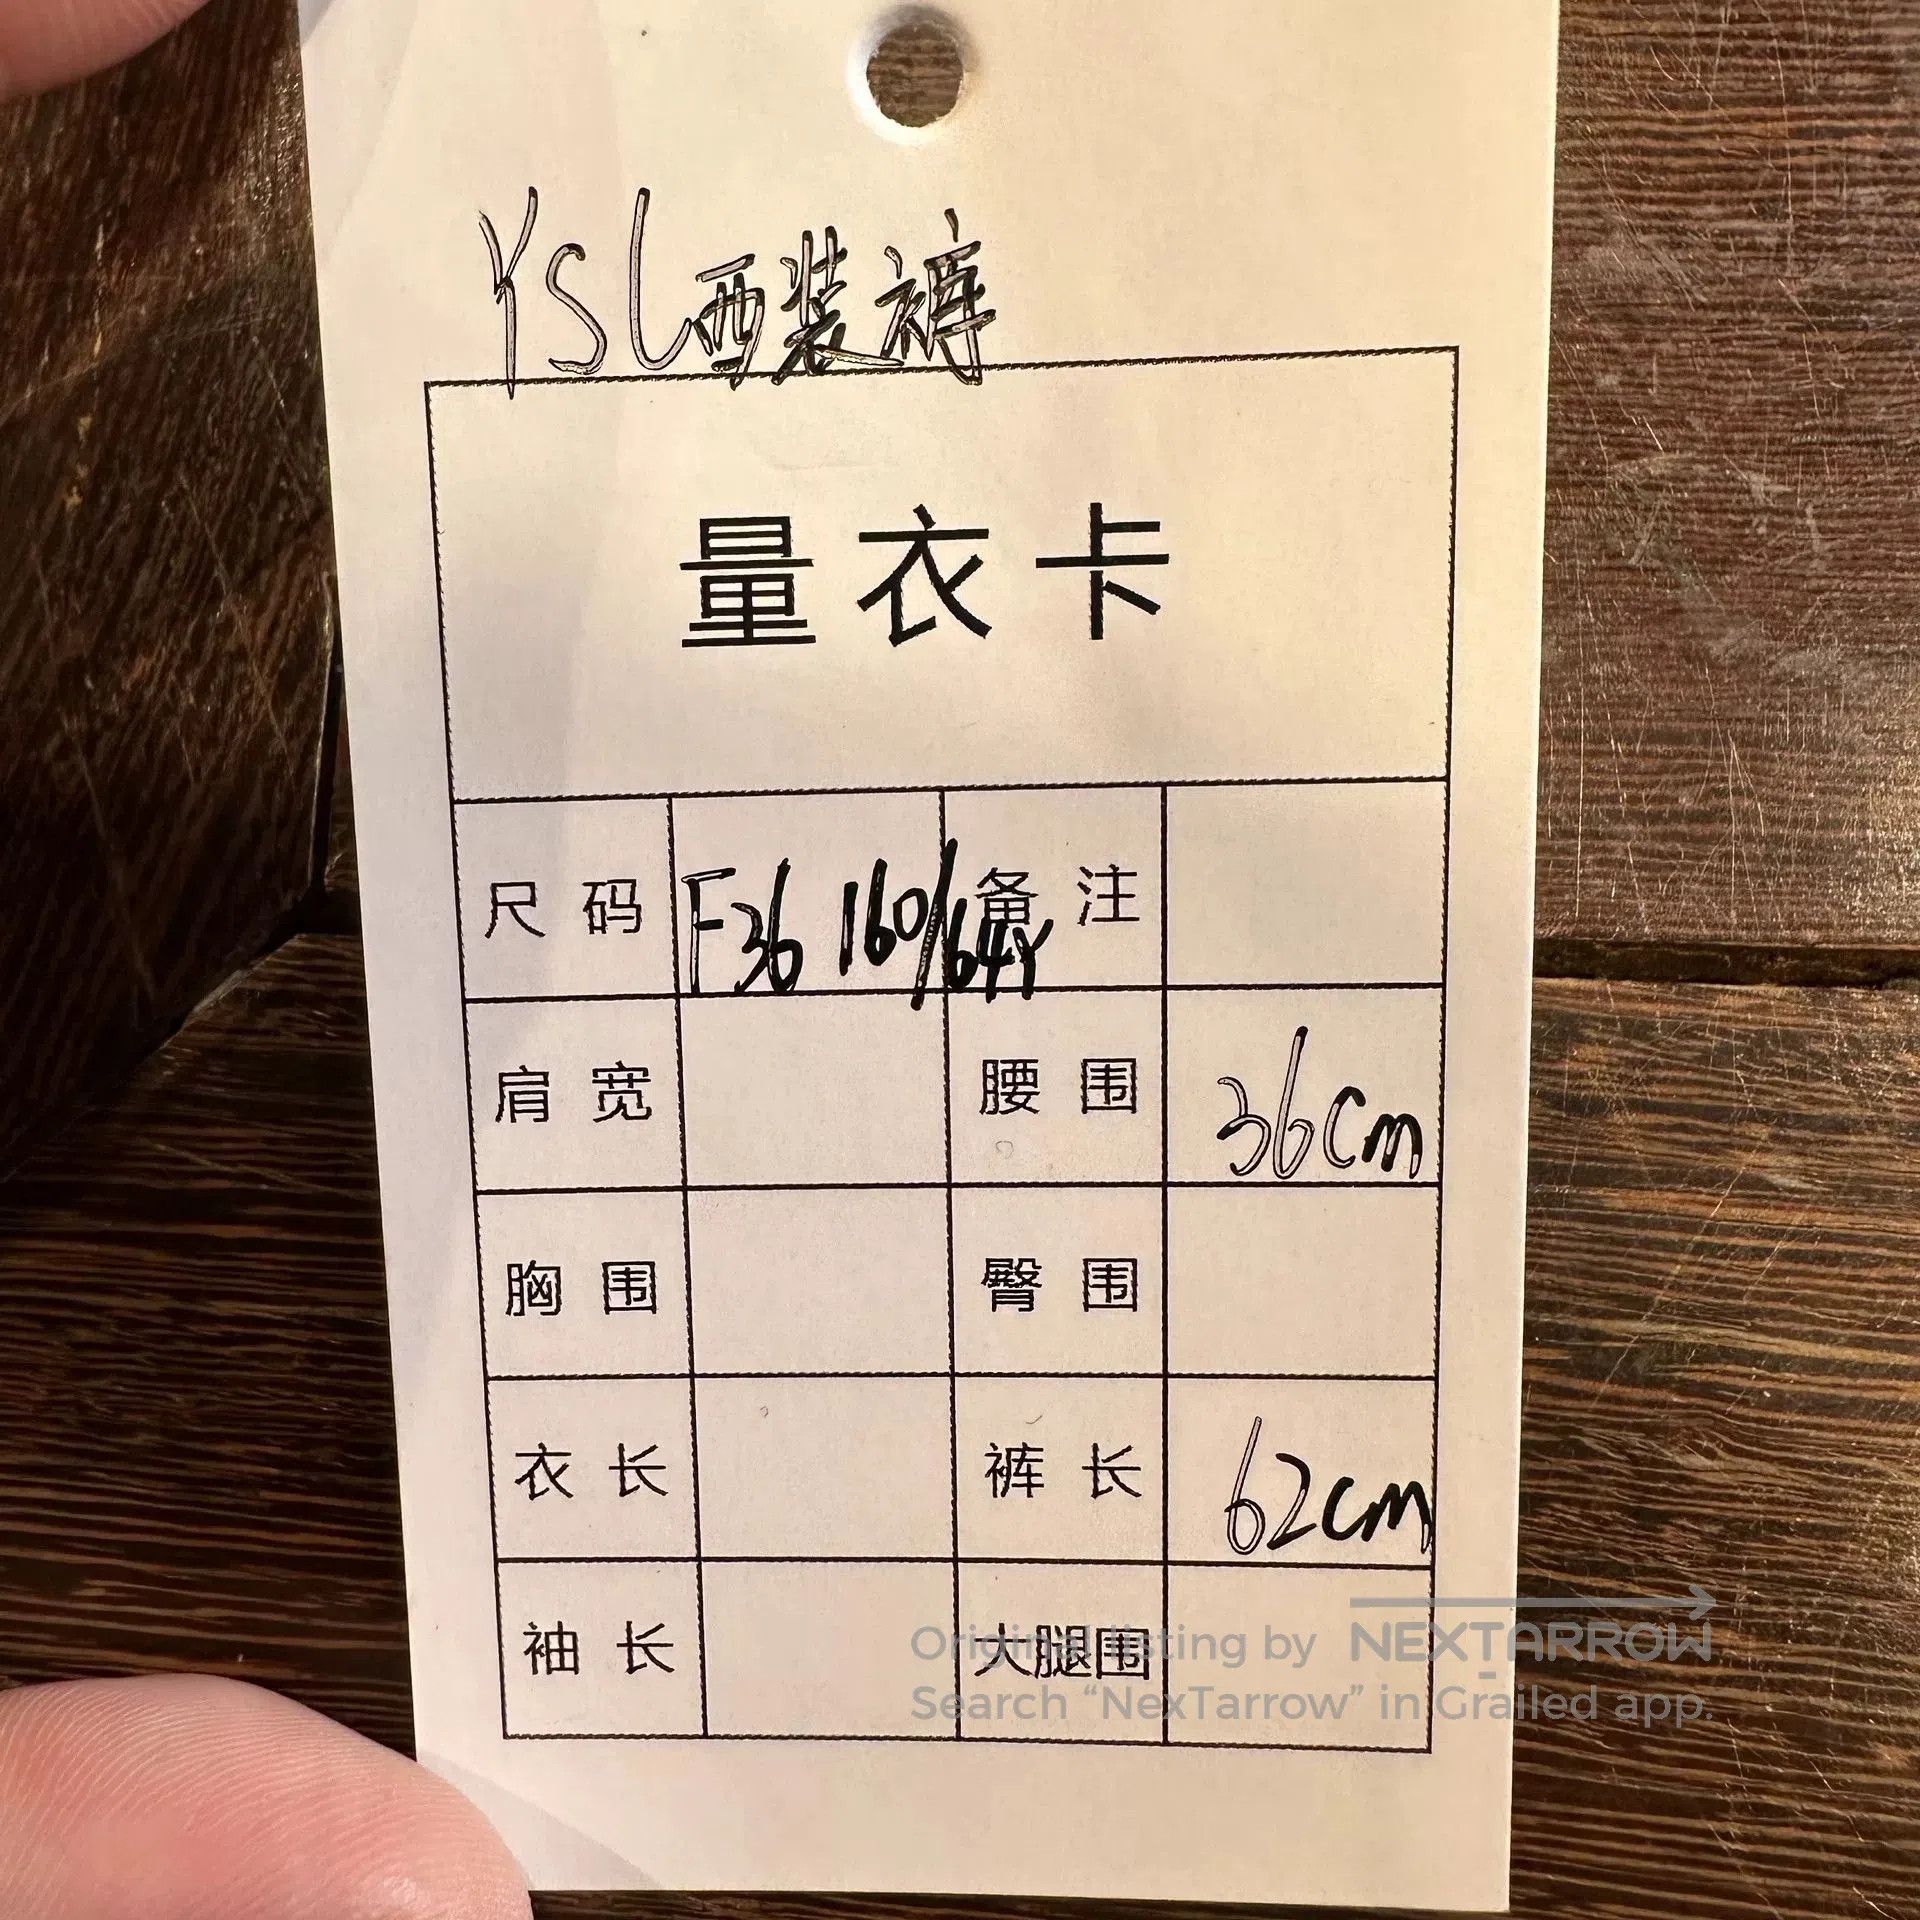 YSL西装裤
量衣卡
尺码 F36 160/64Y 备注
肩宽 腰围 36cm
胸围 臀围
衣长 裤长 62cm
袖长 大腿围
Original listing by NEXTARROW
Search “NexTarrow” in Grailed app.